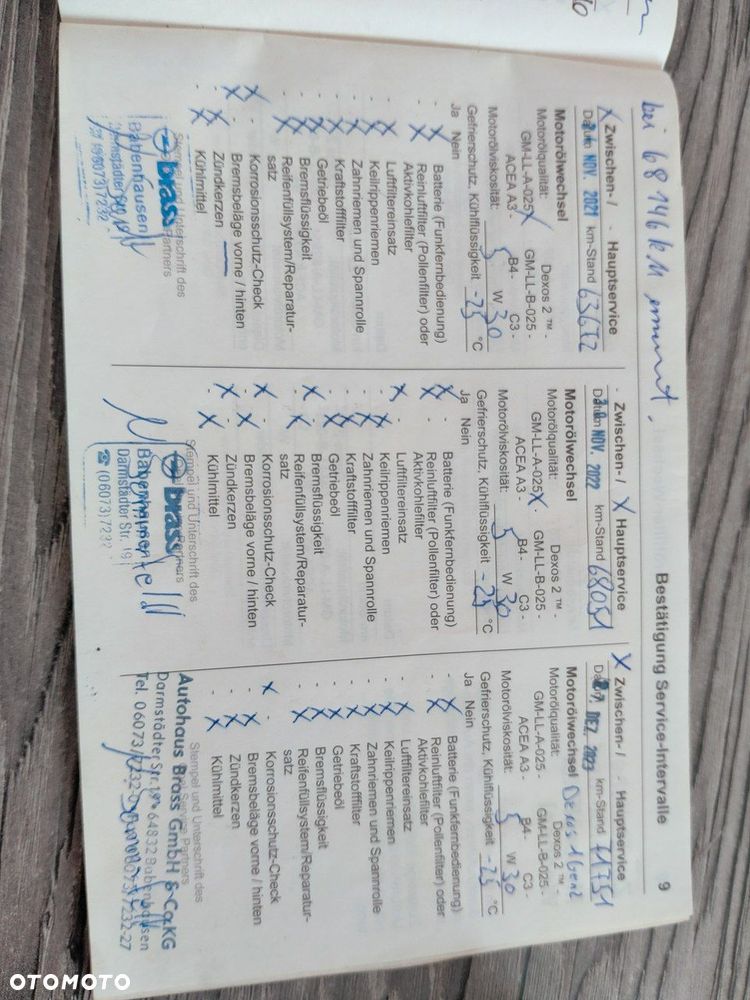 Bestätigung Service-Intervalle
9
bei 68146km erneut.
X Zwischen-/ - Hauptservice
Datum NOV. 2021 km-Stand 63672
Motorölwechsel
Motorölqualität: Dexos 2 ™ -
GM-LL-A-025 X GM-LL-B-025 -
ACEA A3 - B4 - C3 -
Motorölviskosität: 5 W 30
Gefrierschutz, Kühlflüssigkeit -25 °C
Ja Nein
Batterie (Funkfernbedienung)
Reinluftfilter (Pollenfilter) oder
Aktivkohlefilter
Luftfiltereinsatz
Keilrippenriemen
Zahnriemen und Spannrolle
Kraftstofffilter
Getriebeöl
Bremsflüssigkeit
Reifenfüllsystem/Reparatur-
satz
Korrosionsschutz-Check
Bremsbeläge vorne / hinten
Zündkerzen
Kühlmittel
Stempel und Unterschrift des
Partners
brass
Babenhausen
- Zwischen-/ X Hauptservice
Datum NOV. 2022 km-Stand 68051
Motorölwechsel
Motorölqualität: Dexos 2 ™ -
GM-LL-A-025 X - GM-LL-B-025 -
ACEA A3 - B4 - C3 -
Motorölviskosität: 5 W 30
Gefrierschutz, Kühlflüssigkeit -25 °C
Ja Nein
Batterie (Funkfernbedienung)
Reinluftfilter (Pollenfilter) oder
Aktivkohlefilter
Luftfiltereinsatz
Keilrippenriemen
Zahnriemen und Spannrolle
Kraftstofffilter
Getriebeöl
Bremsflüssigkeit
Reifenfüllsystem/Reparatur-
satz
Korrosionsschutz-Check
Bremsbeläge vorne / hinten
Zündkerzen
Kühlmittel
Stempel und Unterschrift des
Partners
brass
Babenhausen
Darmstädter Str.
☎ (06073) 7232
X Zwischen-/ - Hauptservice
DEZ. 2023 km-Stand 71751
Motorölwechsel Dexos 1 Gen2
Motorölqualität: Dexos 2 ™ -
GM-LL-A-025 - GM-LL-B-025 -
ACEA A3 - B4 - C3 -
Motorölviskosität: 5 W 30
Gefrierschutz, Kühlflüssigkeit -25 °C
Ja Nein
Batterie (Funkfernbedienung)
Reinluftfilter (Pollenfilter) oder
Aktivkohlefilter
Luftfiltereinsatz
Keilrippenriemen
Zahnriemen und Spannrolle
Kraftstofffilter
Getriebeöl
Bremsflüssigkeit
Reifenfüllsystem/Reparatur-
satz
Korrosionsschutz-Check
Bremsbeläge vorne / hinten
Zündkerzen
Kühlmittel
Stempel und Unterschrift des
Opel Service Partners
Autohaus Brass GmbH & Co KG
Darmstädter Str. 64832 Babenhausen
Tel. 06073/7232-0 06073/7232-27
OTOMOTO